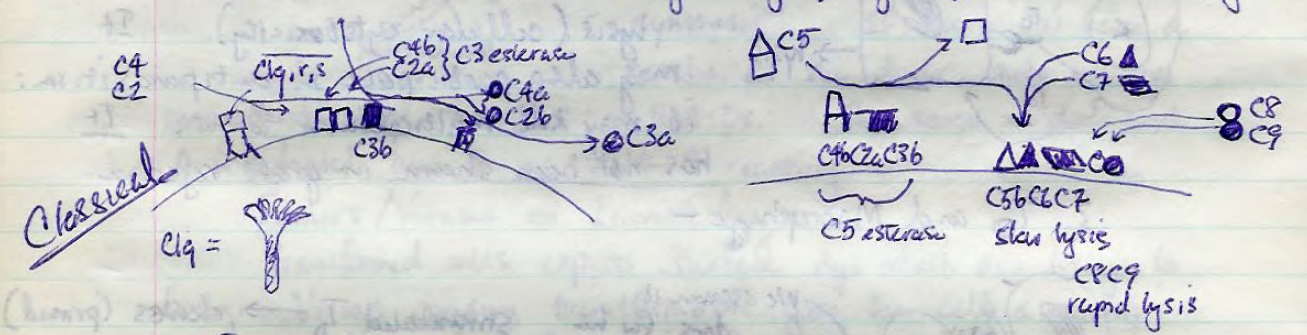 C4
C2
C1q,r,s
C4b
C2a } C3 esterase
C4a
C2b
C3a
C3b
Classical
C1q =
C5
C6
C7
C8
C9
C4bC2aC3b
C5 esterase
C5bC6C7
slow lysis
C8C9
rapid lysis